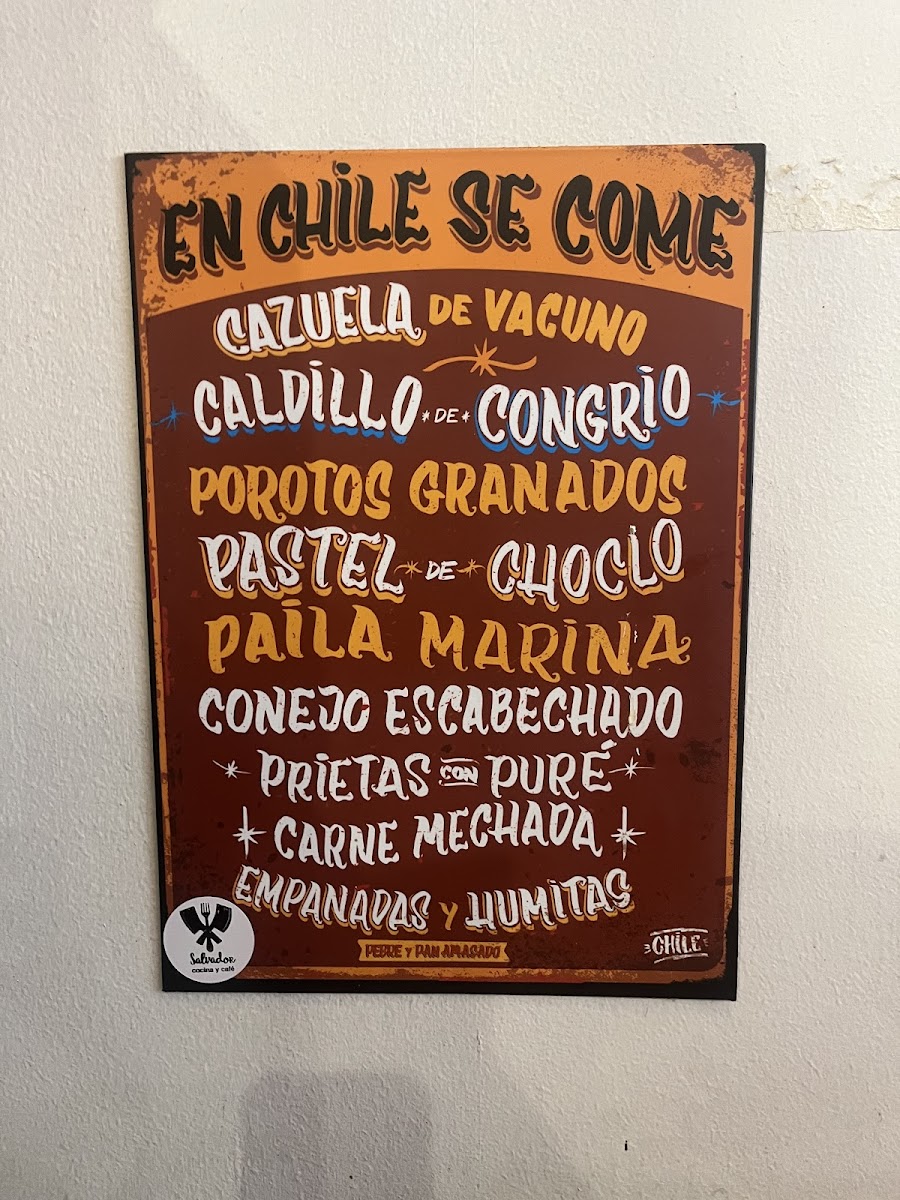 EN CHILE SE COME
CAZUELA DE VACUNO
CALDILLO DE CONGRIO
POROTOS GRANADOS
PASTEL DE CHOCLO
PAILA MARINA
CONEJO ESCABECHADO
PRIETAS CON PURÉ
CARNE MECHADA
EMPANADAS Y HUMITAS
PEBRE Y PAN AMASADO
CHILE
Salvador
cocina y café